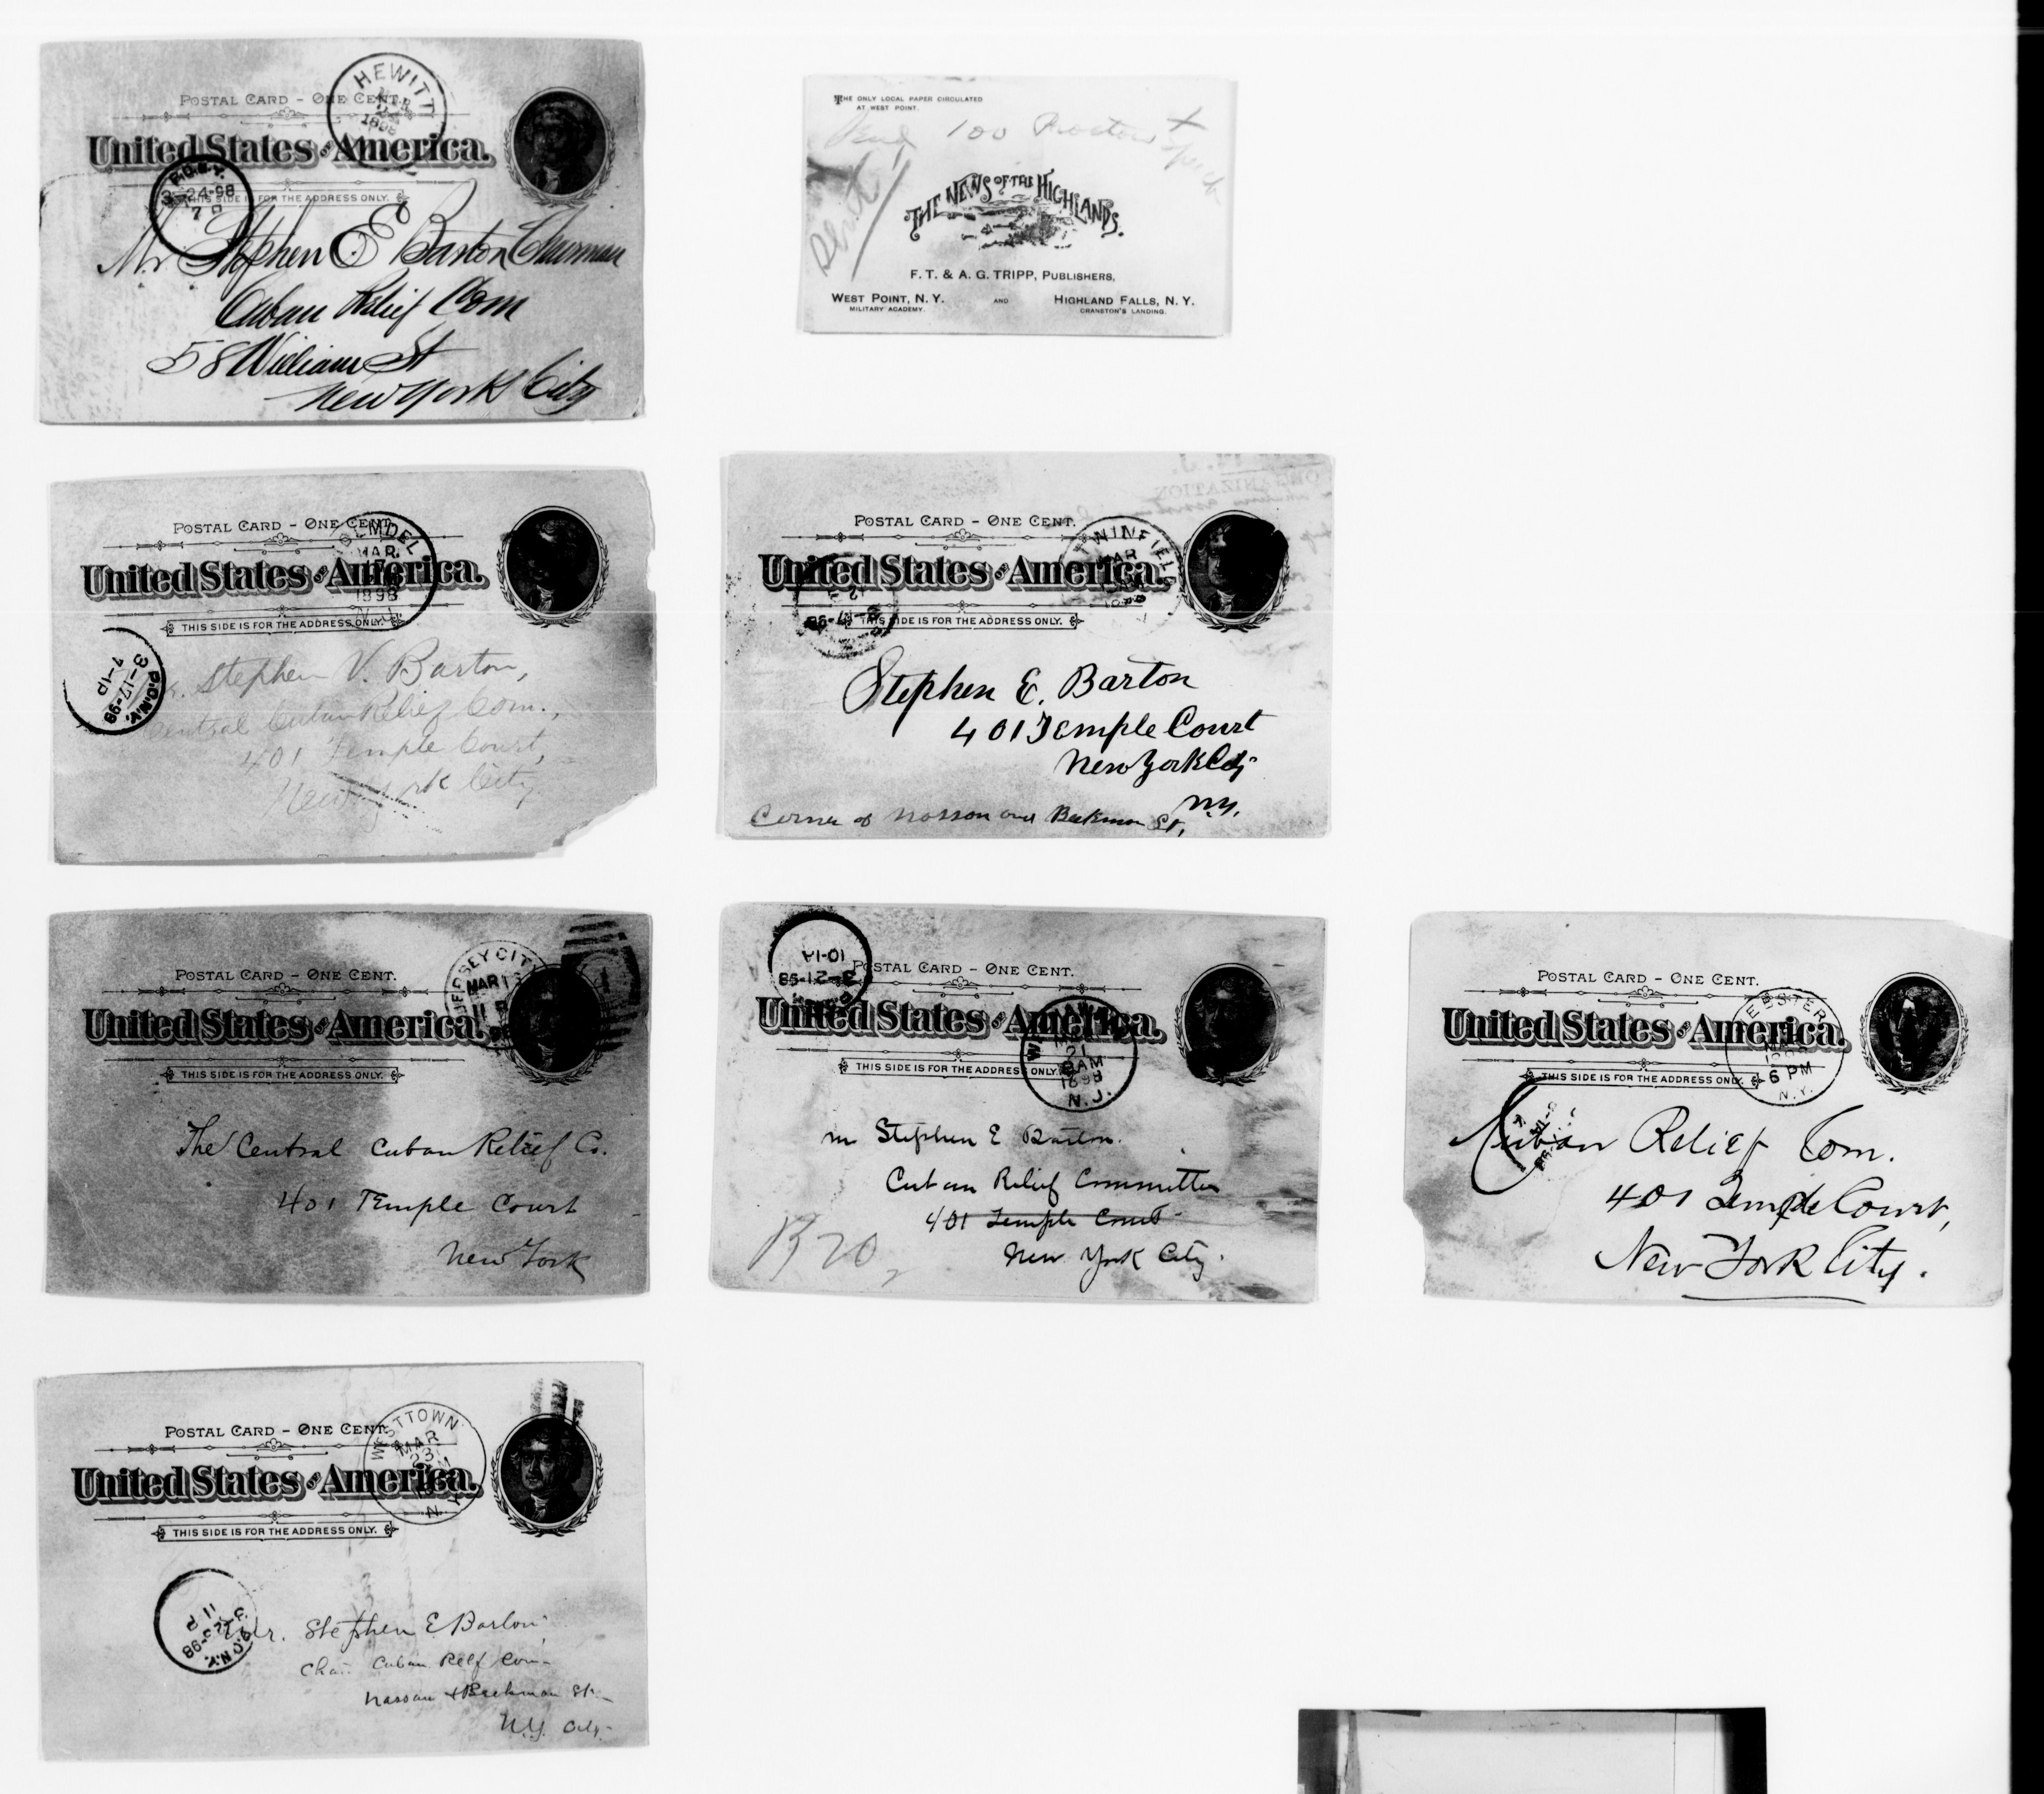 POSTAL CARD - ONE CENT.
HEWITT
MAR
24
1898
United States of America.
P.O.N.Y.
3-24-98
7 P
THIS SIDE IS FOR THE ADDRESS ONLY.
Mr Stephen E Barton Chairman
Cuban Relief Com
58 William St
New York City
THE ONLY LOCAL PAPER CIRCULATED
AT WEST POINT.
100
Sent
THE NEWS OF THE HIGHLANDS.
F. T. & A. G. TRIPP, PUBLISHERS,
WEST POINT, N. Y. AND HIGHLAND FALLS, N. Y.
MILITARY ACADEMY. CRANSTON'S LANDING.
POSTAL CARD - ONE CENT.
MAR
17
1898
United States of America.
THIS SIDE IS FOR THE ADDRESS ONLY.
P.O.N.Y.
3-17-98
7-1P
Stephen V. Barton,
Central Cuban Relief Com.,
401 Temple Court,
New York City
ORGANIZATION
POSTAL CARD - ONE CENT.
TWINFIEL
MAR
United States of America.
THIS SIDE IS FOR THE ADDRESS ONLY.
Stephen E. Barton
401 Temple Court
New York City
N.Y.
Corner of Nasson and Beekman St,
POSTAL CARD - ONE CENT.
JERSEY CITY
MAR
United States of America.
THIS SIDE IS FOR THE ADDRESS ONLY.
The Central Cuban Relief Co.
401 Temple Court
New York
10-1A
3-21-98
POSTAL CARD - ONE CENT.
United States of America.
21
8 AM
1898
N.J.
THIS SIDE IS FOR THE ADDRESS ONLY.
Mr Stephen E Barton.
Cuban Relief Committee
401 Temple Court
New York City.
POSTAL CARD - ONE CENT.
EBSTER
6 PM
N.Y.
United States of America.
THIS SIDE IS FOR THE ADDRESS ONLY.
Cuban Relief Com.
401 Temple Court,
New York City.
POSTAL CARD - ONE CENT.
WESTTOWN
MAR
23
N.Y.
United States of America.
THIS SIDE IS FOR THE ADDRESS ONLY.
P.O.N.Y.
11 P
Mr. Stephen E Barton
Cuban Relf Com
Nassau & Beekman St.
N.Y. City